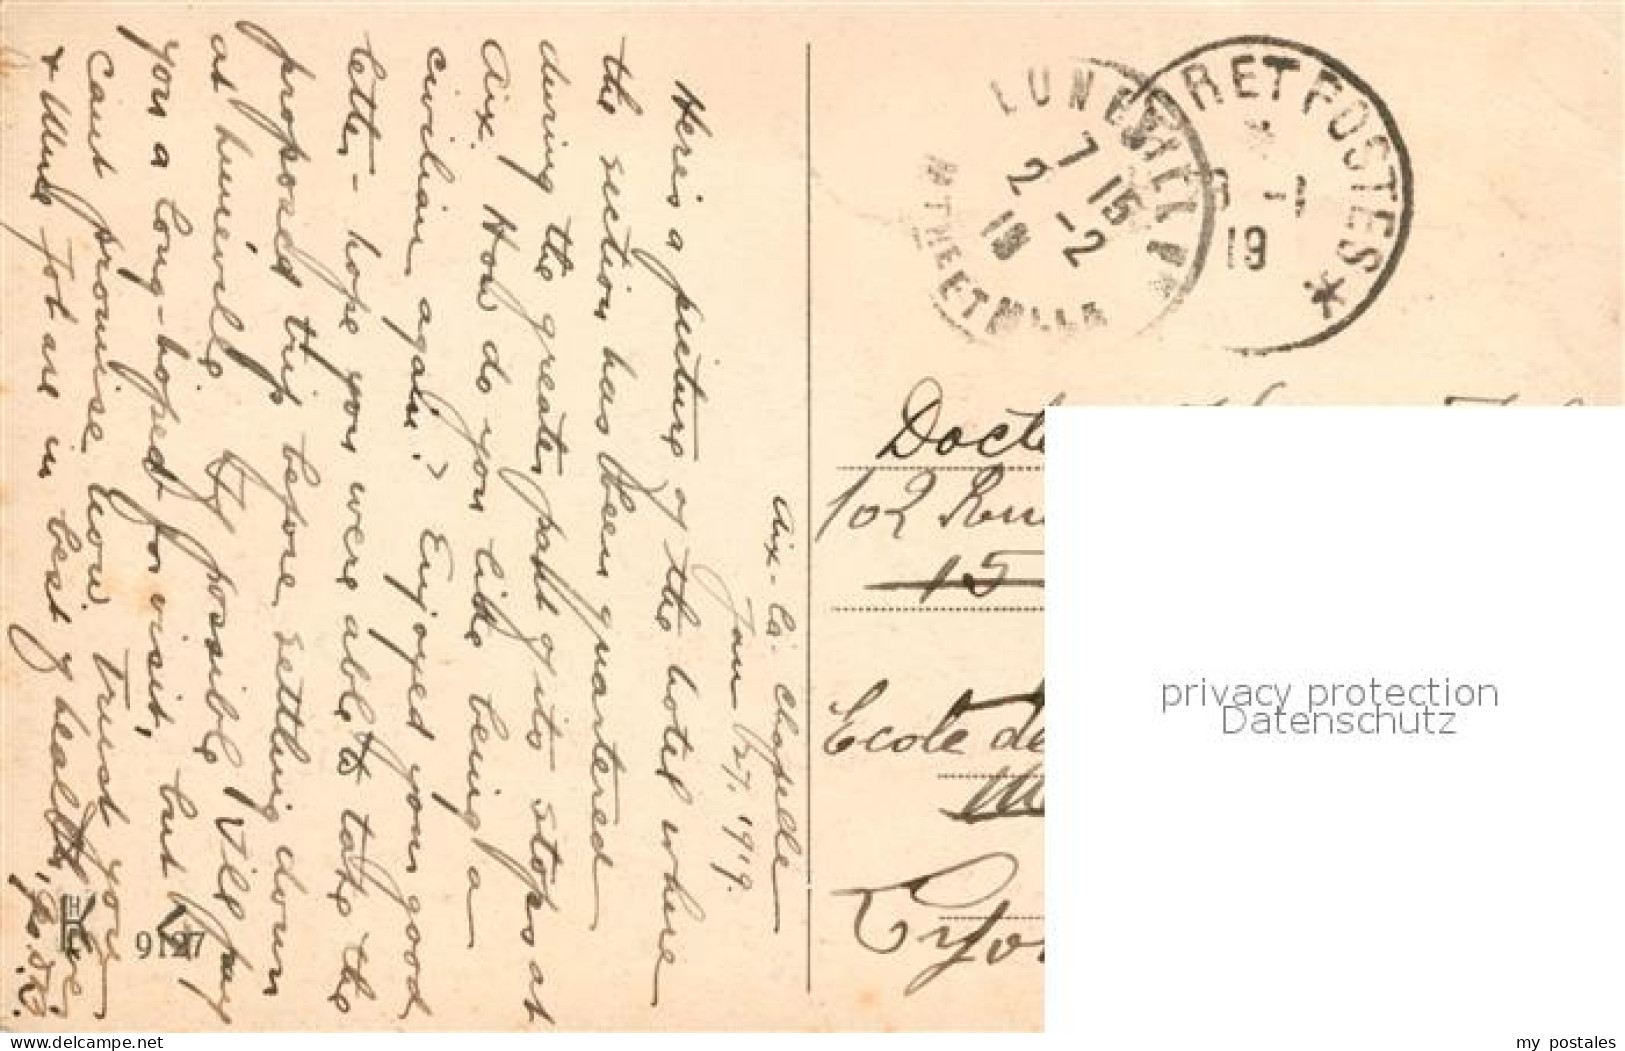 Aix-la-Chapelle
Jan 27, 1919.
Here is a picture of the hotel where
the section has been quartered
during the greater part of its stops at
Aix. How do you like being a
civilian again? Enjoyed your good
letter - hope you were able to take the
proposed trip before settling down
at
If possible I'll pay
you a long-hoped for visit, but I
can't promise now. Trust you
& Mme Job are in best of health,
LUNEVILLE
7 15
2 -2
19
MTHE ET MLLE
RET POSTES *
19
Doct
102 Rue
15
Ecole de
Lyon
HK
9127
privacy protection
Datenschutz
www.delcampe.net
my_postales